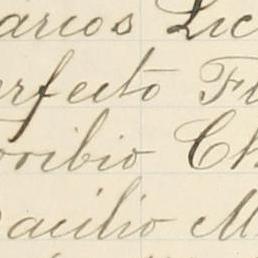 arcos Lic
erfecto Fl
oribio Ch
acilio M